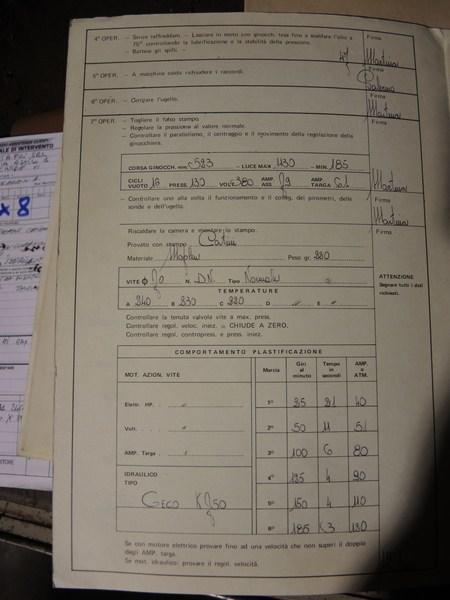 4ª OPER. – Senza raffreddam. – Lasciare in moto con ginocch. tesa fino a scaldare l'olio a
70° controllando la lubrificazione e la stabilità della pressione.
– Battere gli spilli. –
Firma
5ª OPER. – A macchina calda richiudere i raccordi.
Firma
6ª OPER. – Cenrare l'ugello.
Firma
7ª OPER. – Togliere il falso stampo.
– Regolare la pressione al valore normale.
– Controllare il parallelismo, il centraggio e il movimento della regolazione della
ginocchiera.
Firma
CORSA GINOCCH. mm 523 – LUCE MAX 1130 – MIN. 185
CICLI VUOTO 16 PRESS. 130 VOLT. 380 AMP. ASS. AMP. TARGA
– Controllare uno alla volta il funzionamento e il colleg. dei pirometri, delle
sonde e dell'ugello.
Firma
Riscaldare la camera e montare lo stampo.
Firma
Provato con stampo
Materiale Moplen Peso gr. 220
VITE ϕ N. D.N. Tipo Normale
ATTENZIONE
Segnare tutti i dati
richiesti.
TEMPERATURE
A 240 B 230 C 220 D " E "
Controllare la tenuta valvola vite a max. press.
Controllare regol. veloc. iniez. = CHIUDE A ZERO.
Controllare regol. contropress. e press. iniez.
COMPORTAMENTO PLASTIFICAZIONE
MOT. AZION. VITE Marcia Giri al minuto Tempo in secondi AMP. o ATM.
Elettr. HP. " 1ª 25 21 40
Volt. " 2ª 50 11 51
AMP. Targa " 3ª 100 6 80
IDRAULICO
TIPO
4ª 125 4 90
5ª 150 4 110
6ª 185 130
Se con motore elettrico provare fino ad una velocità che non superi il doppio
degli AMP. targa.
Se mot. idraulico: provare il regol. velocità.